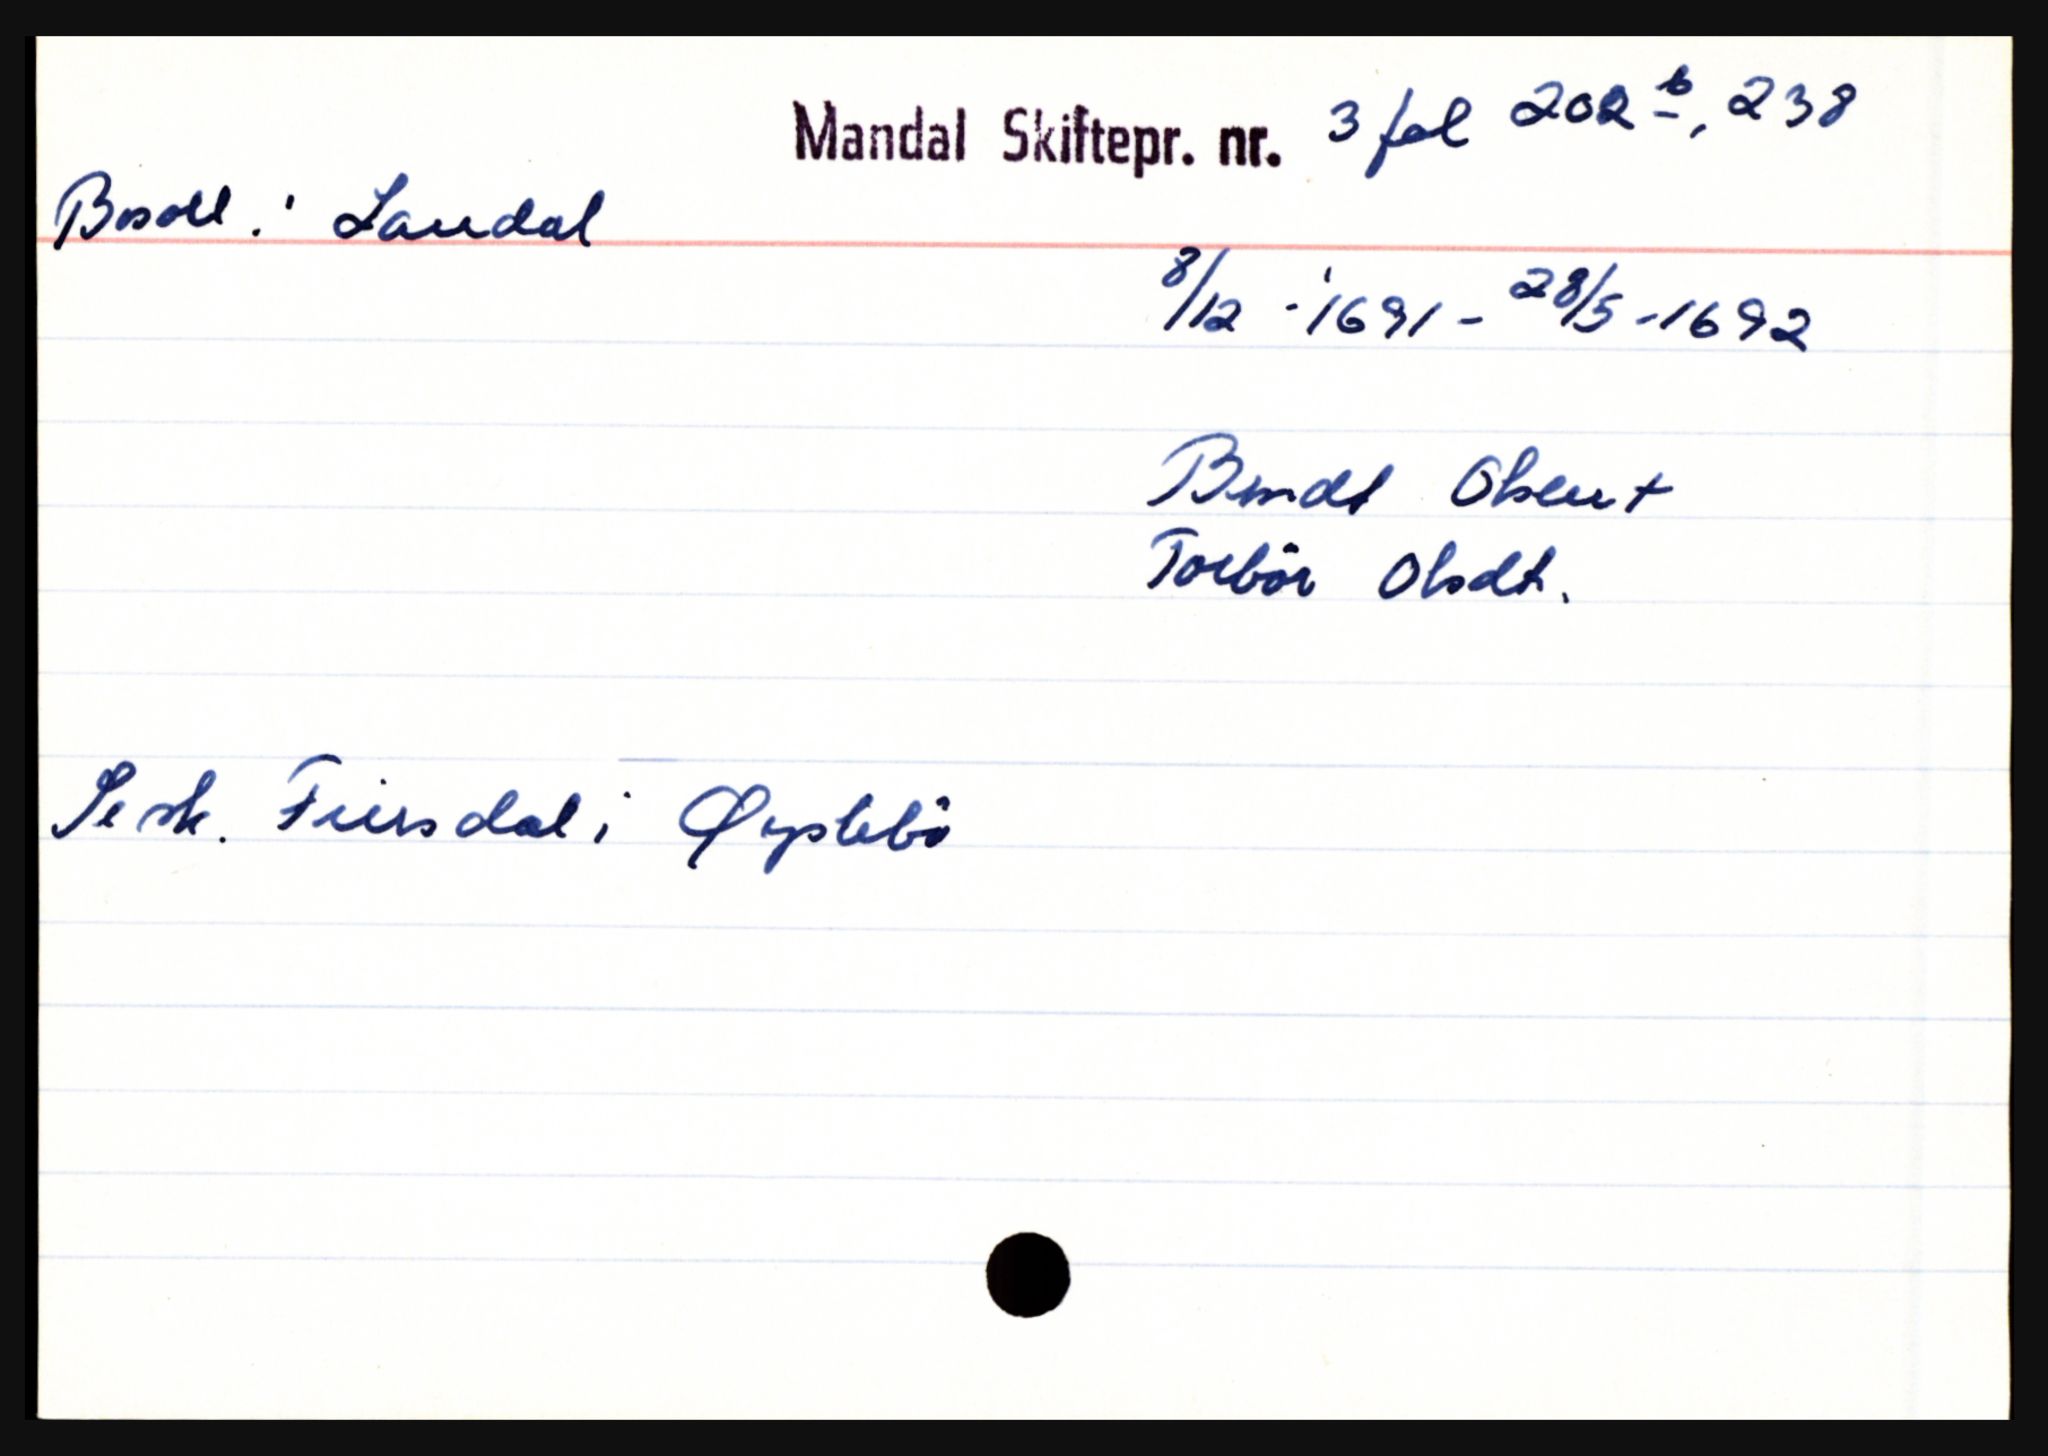 Mandal Skiftepr. nr. 3 fol 202 b, 238
i Laudal
8/12 - 1691 - 28/5 - 1692
Berndt Olsen +
Torbör Olsdt.
Se sk. Fiersdal i Øyslebö